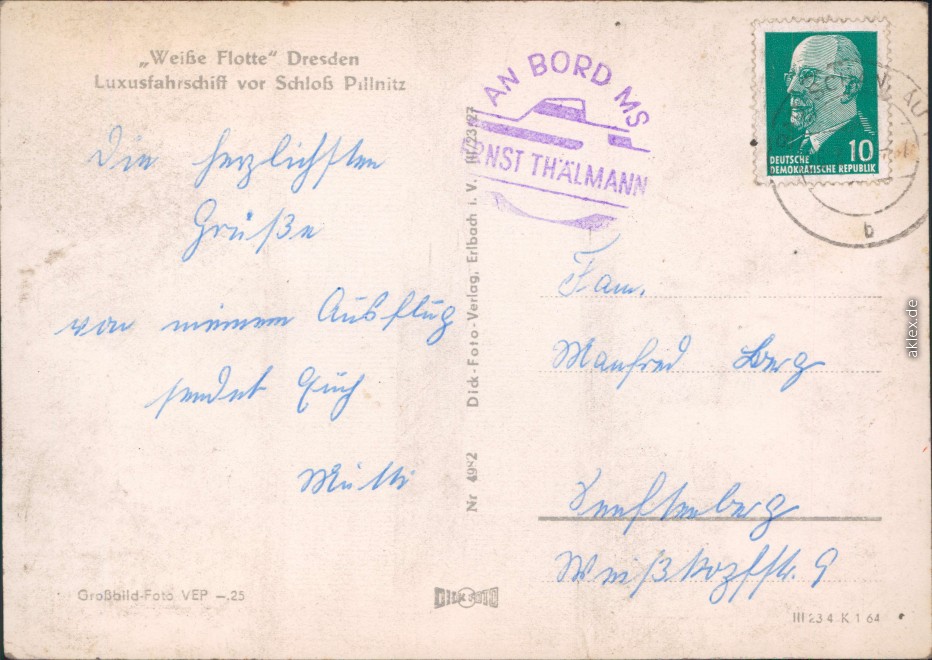 „Weiße Flotte“ Dresden
Luxusfahrschiff vor Schloß Pillnitz
Die herzlichsten
Grüße
von meinem Ausflug
sendet Euch
Mutti
Großbild-Foto VEP –.25
Nr 4982 Dick-Foto-Verlag, Erlbach i. V. III/23/27
DICK FOTO
AN BORD MS
ERNST THÄLMANN
10
DEUTSCHE
DEMOKRATISCHE REPUBLIK
b
Fam.
Manfred Berg
Senftenberg
Weißkopfstr. 9
III 23 4 K 1 64
aklex.de